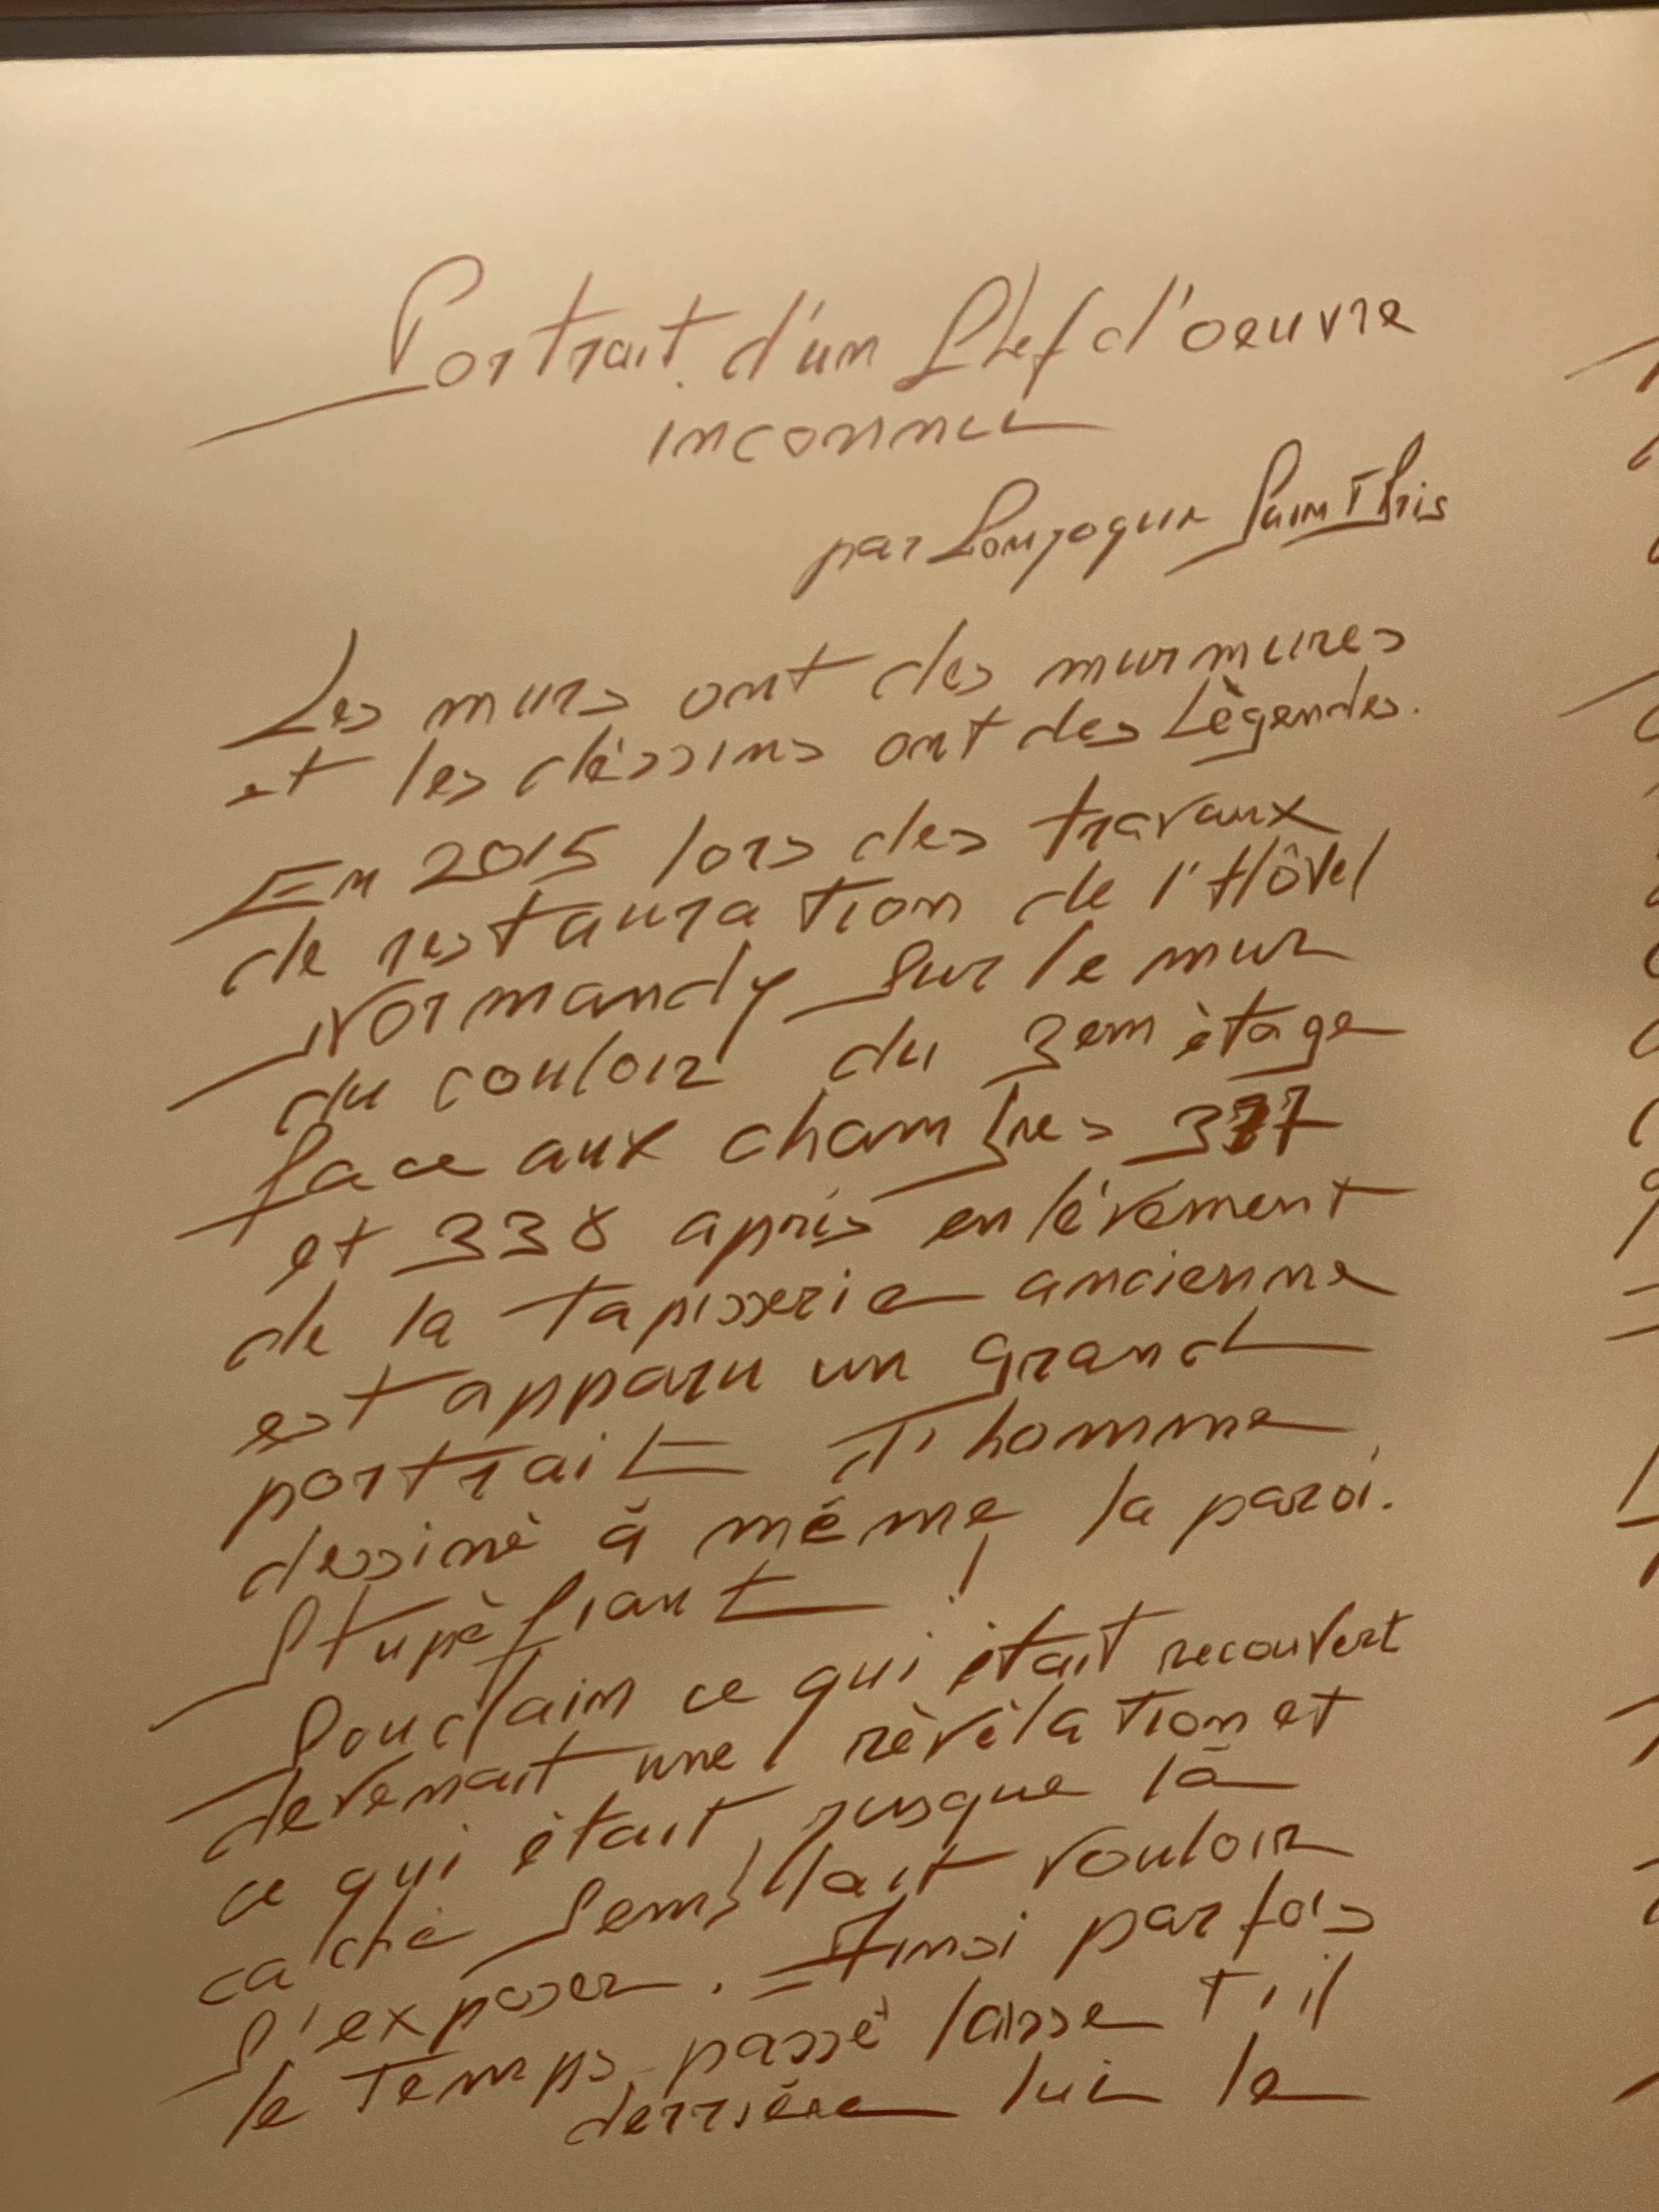 Portrait d'un Chef d'oeuvre
inconnu
par Lonjoquin Saint Pris
Les murs ont des murmures
et les déssins ont des Lègendes.
En 2015 lors des travaux
de restauration de l'Hôtel
Normandy sur le mur
du couloir du 3em ètage
face aux chambres 337
et 338 après enlévement
de la tapisserie ancienne
est apparu un grand
portrait d'homme
dessinè à même la paroi.
Stupèfiant !
Soudain ce qui ètait recouvert
devenait une rèvèlation et
ce qui ètait jusque là
cachè semblait vouloir
s'exposer. Ainsi parfois
le temps passè laisse t'il
derrière lui le